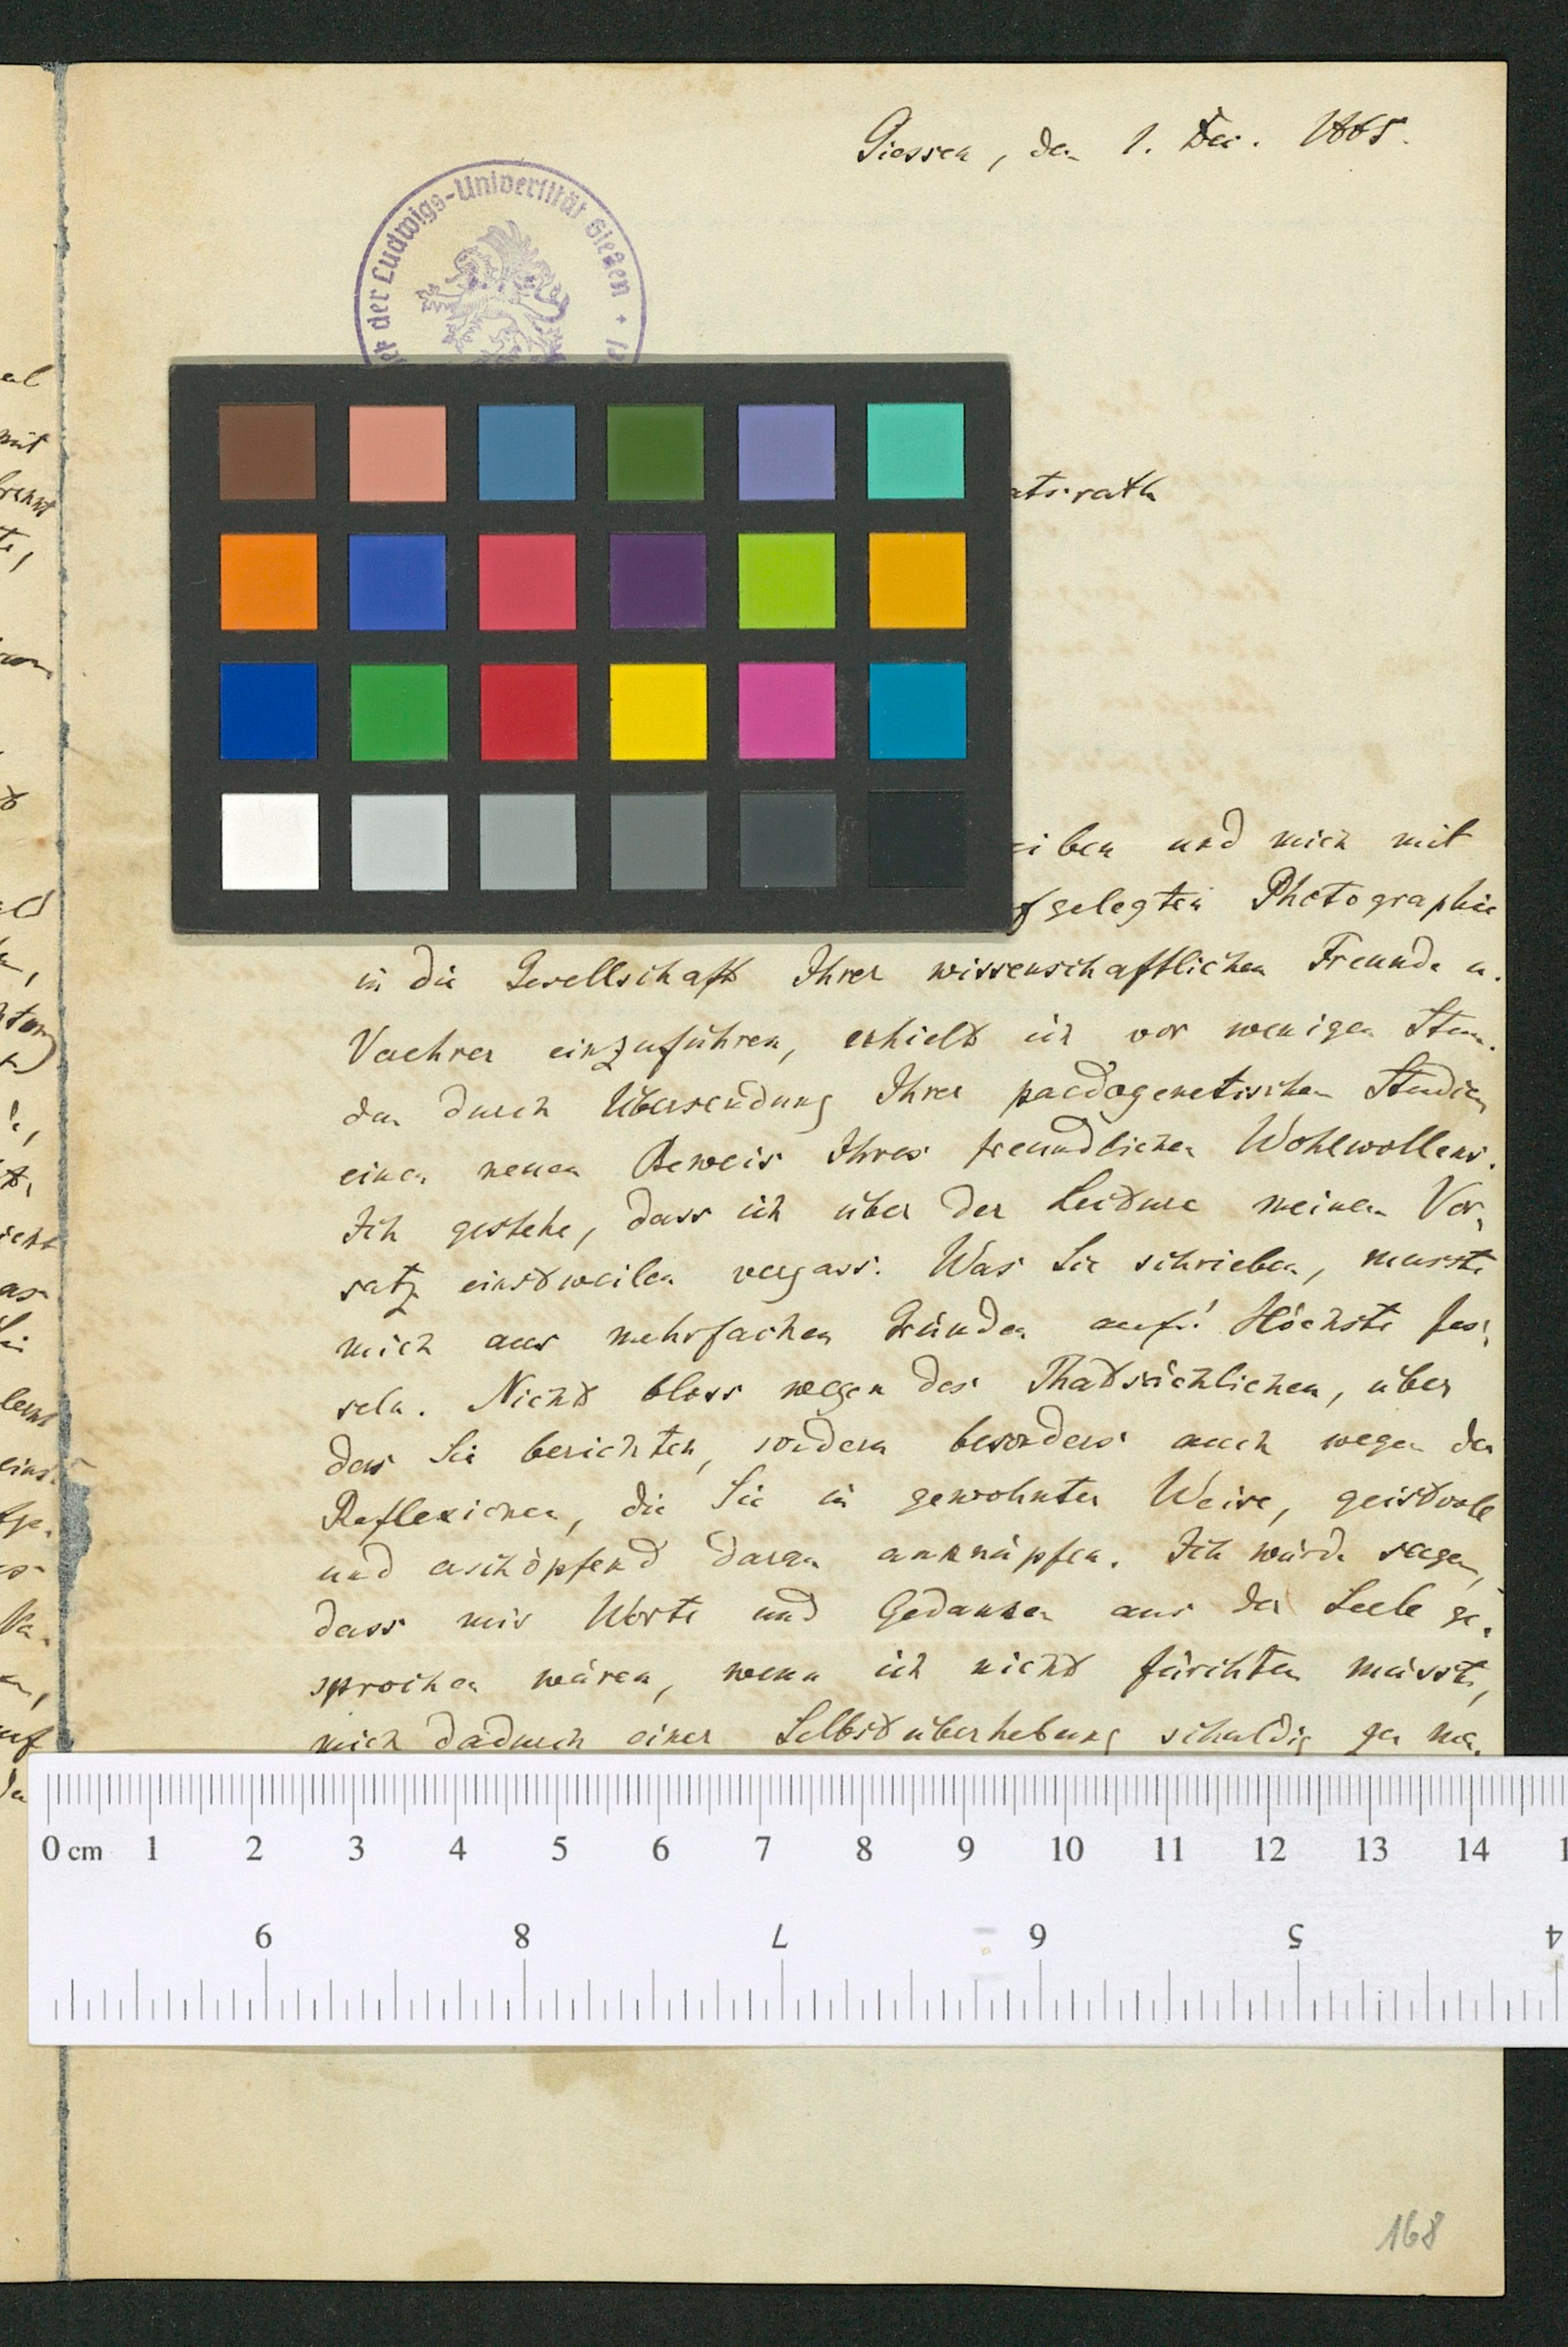 Giessen, den 1. Dec. 1865.
der Ludwigs-Universität Gießen
atsrath
eiben und mich mit
fgelegten Photographie
in die Gesellschaft Ihrer wissenschaftlichen Freunde u.
Verehrer einzuführen, erhielt ich vor wenigen Stun-
den durch Übersendung Ihrer paedogenetischen Studien
einen neuen Beweis Ihres freundlichen Wohlwollens.
Ich gestehe, dass ich über der Lectüre meinen Vor-
satz einstweilen vergass. Was Sie schrieben, musste
mich aus mehrfachen Gründen auf's Höchste fes-
seln. Nicht bloss wegen des Thatsächlichen, über
das Sie berichten, sondern besonders auch wegen der
Reflexionen, die Sie in gewohnter Weise, geistvoll
und erschöpfend daran anknüpfen. Ich würde sagen,
dass mir Worte und Gedanken aus der Seele ge-
sprochen wären, wenn ich nicht fürchten müsste,
mich dadurch einer Selbstüberhebung schuldig zu ma-
0 cm 1 2 3 4 5 6 7 8 9 10 11 12 13 14 1
9 8 7 6 5 4
168
al
mit
te,